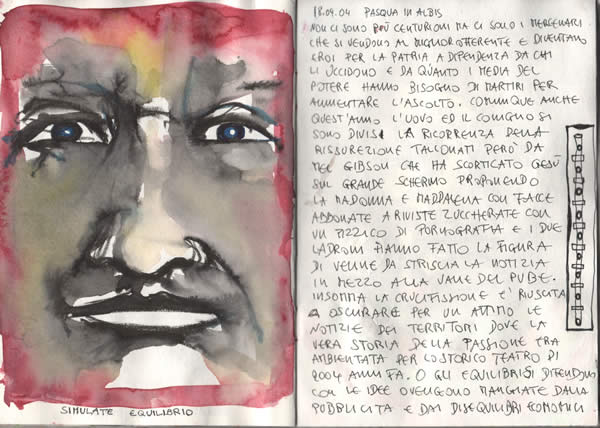 SIMULATE EQUILIBRIO
18.04.04 PASQUA IN ALBIS
NON CI SONO PIÙ CENTURIONI MA CI SONO I MERCENARI
CHE SI VENDONO AL MIGLIOR OFFERENTE E DIVENTANO
EROI PER LA PATRIA A DIPENDENZA DA CHI
LI UCCIDONO E DA QUANTO I MEDIA DEL
POTERE HANNO BISOGNO DI MARTIRI PER
AUMENTARE L'ASCOLTO. COMUNQUE ANCHE
QUEST'ANNO L'UOVO ED IL CONIGLIO SI
SONO DIVISI LA RICORRENZA DELLA
RISSUREZIONE TALLONATI PERÒ DA
MEL GIBSON CHE HA SCORTICATO GESÙ
SUL GRANDE SCHERMO PROPONENDO
LA MADONNA E MADDALENA CON FACCE
ABBONATE A RIVISTE ZUCCHERATE CON
UN PIZZICO DI PORNOGRAFIA E I DUE
LADRONI HANNO FATTO LA FIGURA
DI VELINE DA STRISCIA LA NOTIZIA
IN MEZZO ALLA VALLE DEL PUBE.
INSOMMA LA CRUCIFISSIONE E' RIUSCITA
A OSCURARE PER UN ATTIMO LE
NOTIZIE DEI TERRITORI DOVE LA
VERA STORIA DELLA PASSIONE ERA
AMBIENTATA PER LO STORICO TEATRO DI
2004 ANNI FA. O GLI EQUILIBRI SI DIFENDONO
CON LE IDEE O VENGONO MANGIATE DALLA
PUBBLICITA E DAI DISEQUILIBRI ECONOMICI